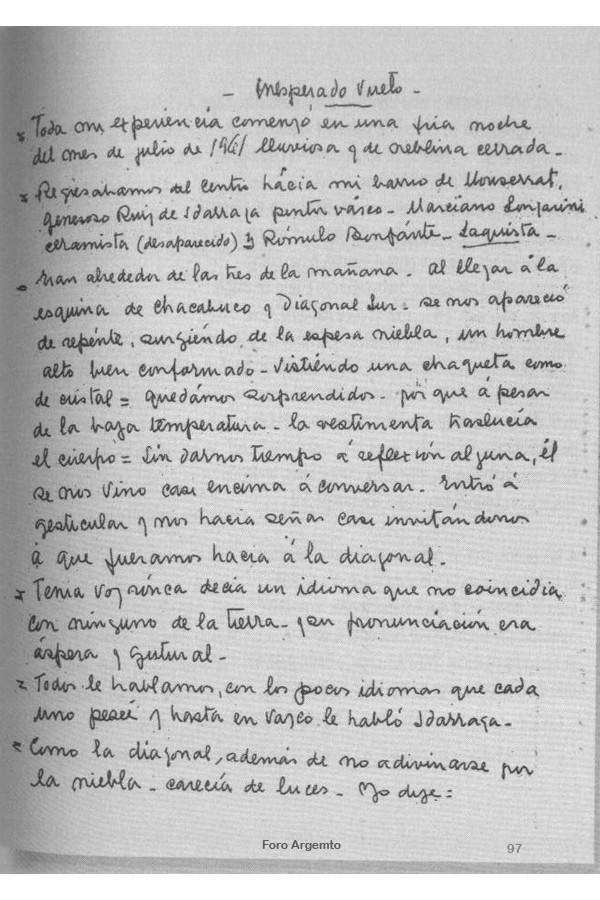 - Inesperado Vuelo -
Toda mi experiencia comenzó en una fria noche
del mes de julio de 1941 lluviosa y de neblina cerrada -
Regresabamos del Centro hácia mi barrio de Monserrat,
generoso Ruiz de Idarraga pintor vásco - Marciano Longarini
ceramista (desaparecido) y Rómulo Bonfánte - Laquista -
Eran alrededor de las tres de la mañana - al llegar á la
esquina de Chacabuco y Diagonal Sur = se nos apareció
de repénte, surgiéndo de la espesa niebla, un hombre
alto bien conformado - vistiéndo una chaqueta como
de cristal = quedámos sorprendidos - por que á pesar
de la baja temperatura - la vestimenta traslucía
el cuerpo = Sin darnos tiempo á reflexión alguna, él
se nos vino casi encima á conversar - Entró á
gesticular y nos hacia señas casi invitándonos
á que fueramos hacia á la diagonal -
Tenia voz rónca decia un idioma que no coincidia
con ninguno de la tierra - y su pronunciación era
áspera y gutural -
Todos le hablamos, con los pocos idiomas que cada
uno peseé y hasta en vasco le habló Idarraga -
Como la diagonal, además de no adivinarse por
la niebla - carecía de luces - Yo dije =
Foro Argemto
97